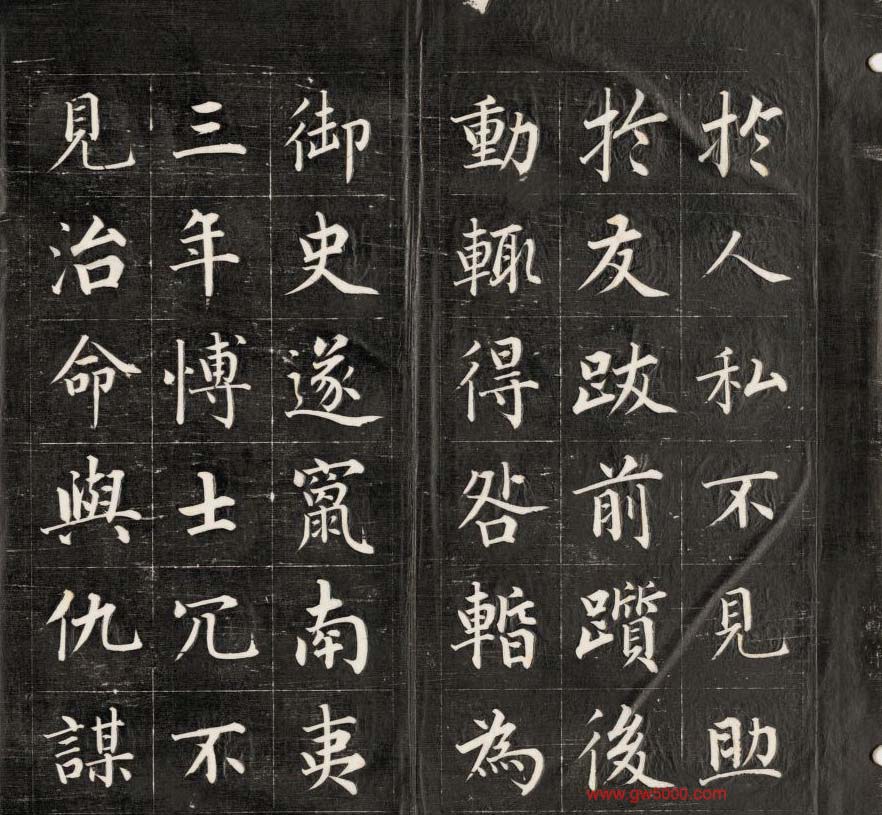 於人私不見助
於友跋前躓後
動輒得咎暫為
御史遂竄南夷
三年博士冗不
見治命與仇謀
www.gw5000.com